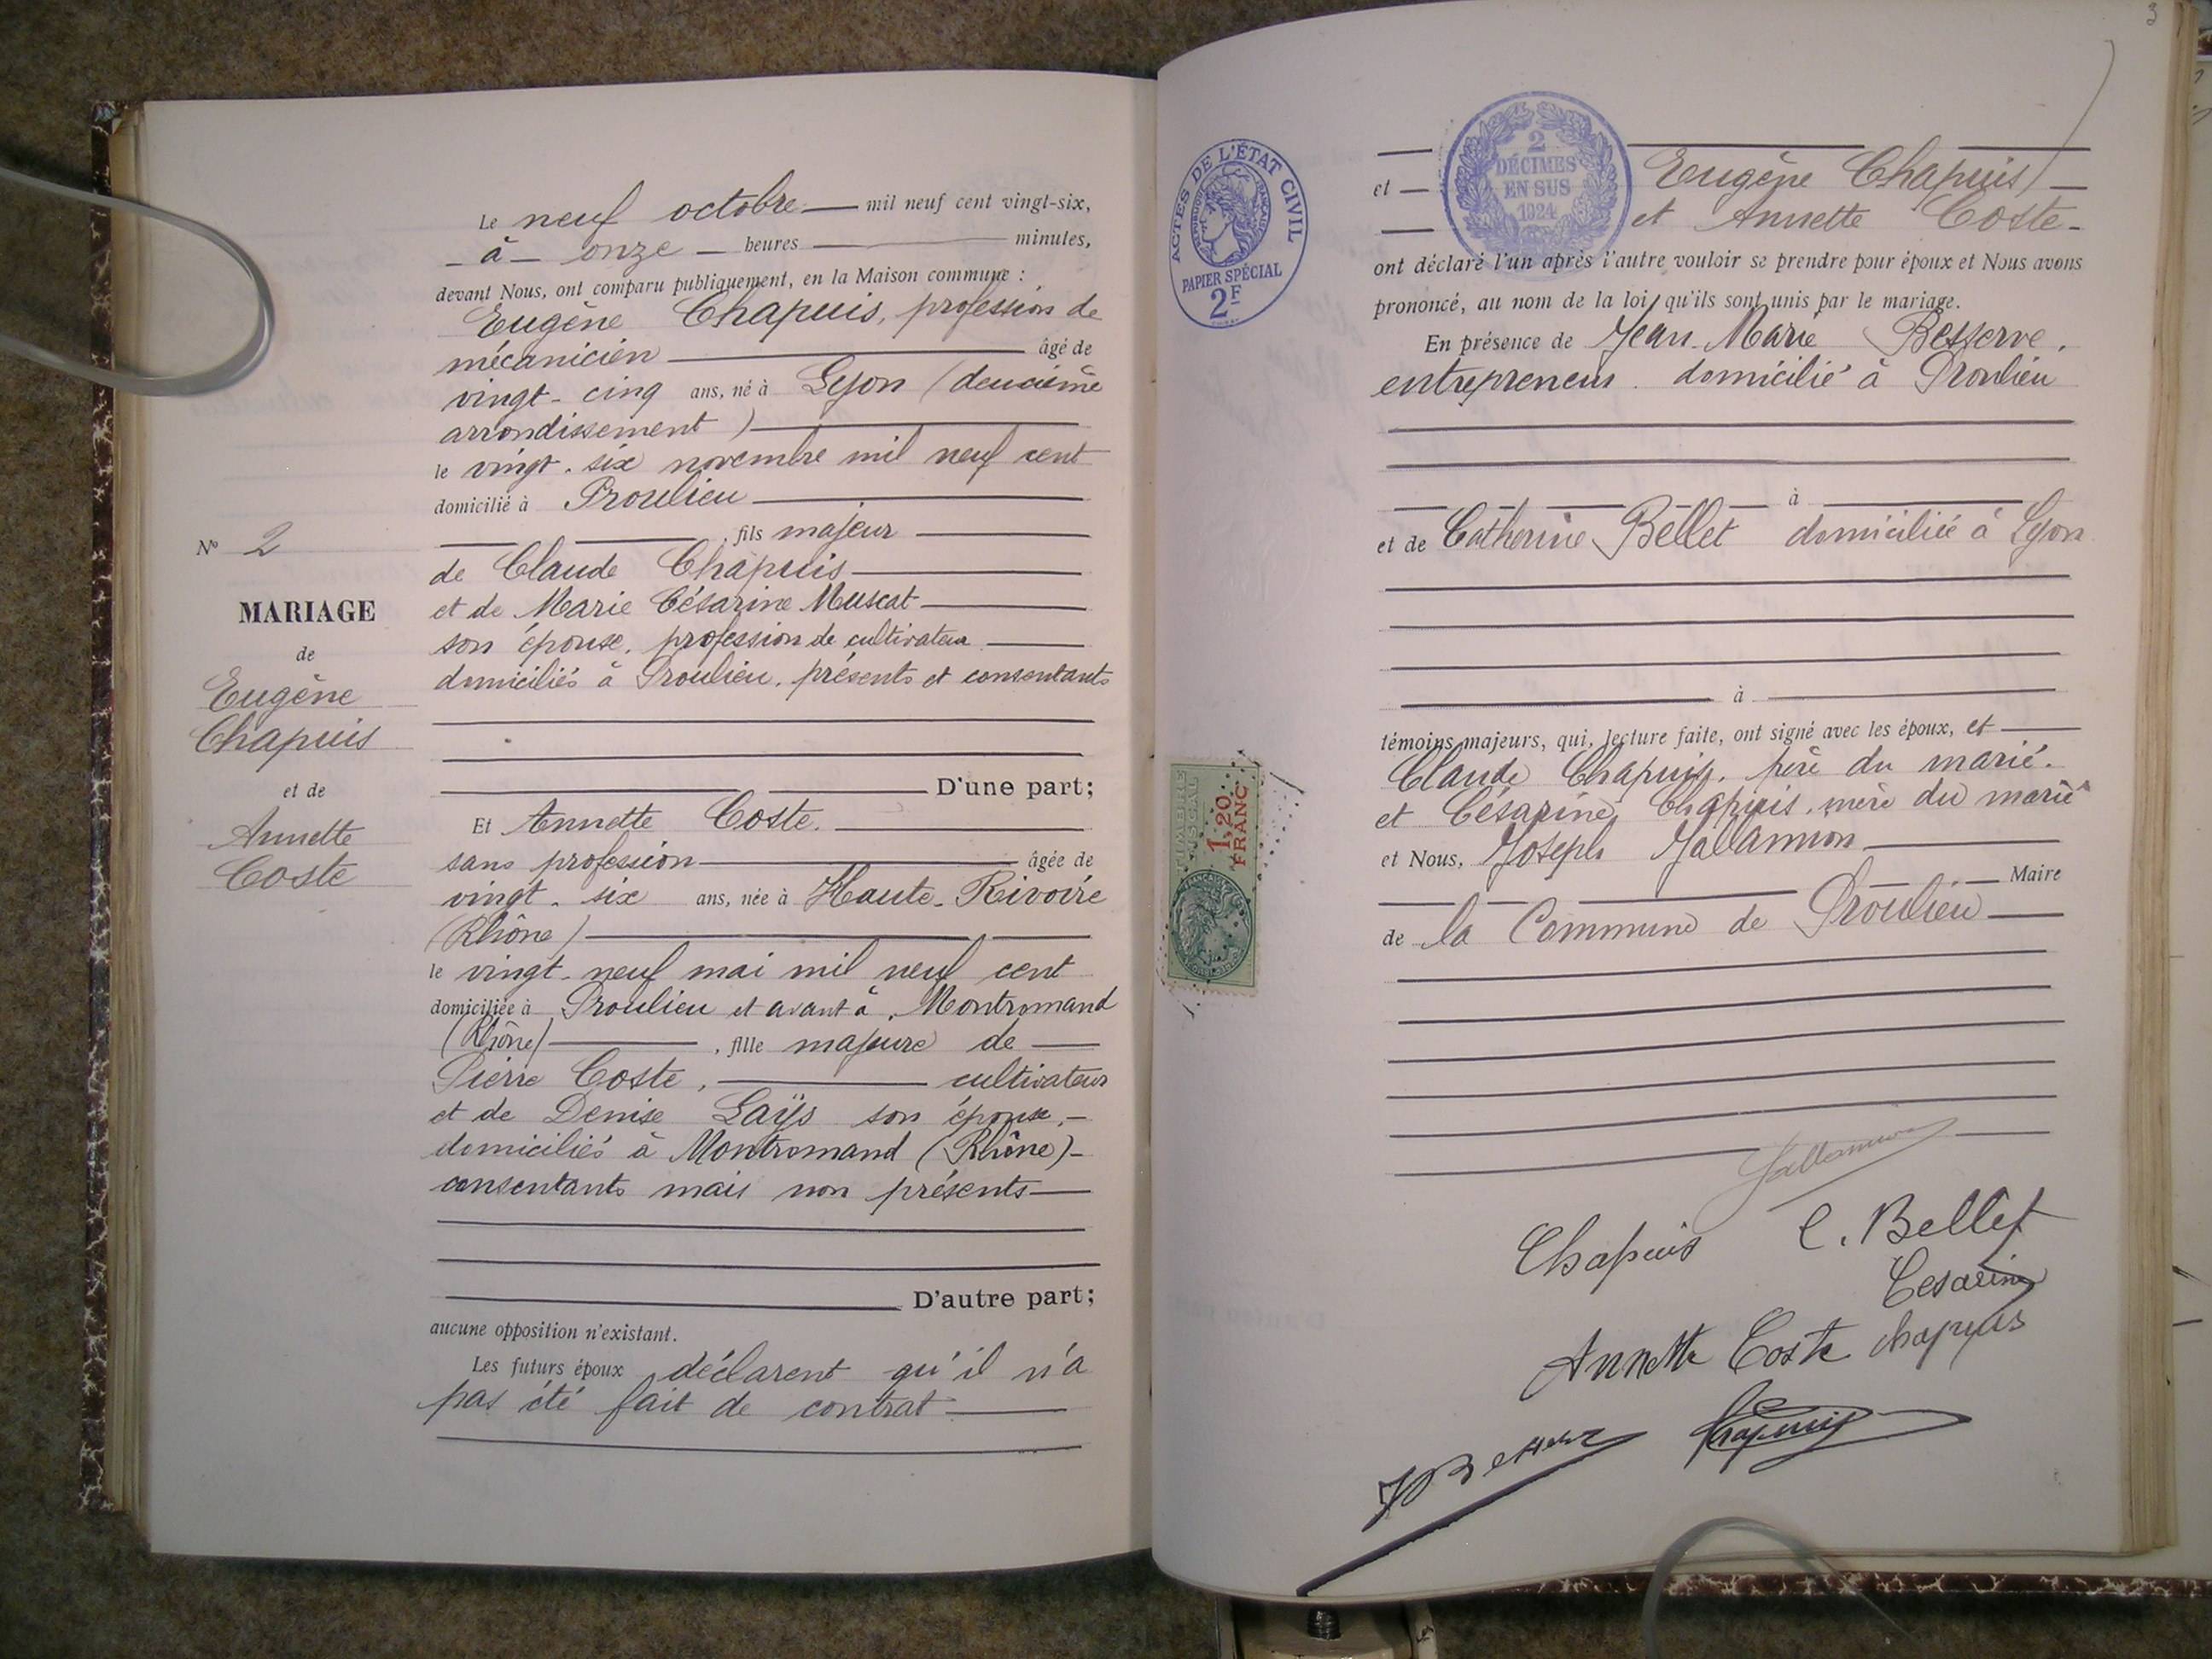 Le neuf octobre mil neuf cent vingt-six,
à onze heures minutes,
devant Nous, ont comparu publiquement, en la Maison commune :
Eugène Chapuis, profession de
mécanicien âgé de
vingt-cinq ans, né à Lyon (deuxième
arrondissement)
le vingt-six novembre mil neuf cent
domicilié à Proulieu
, fils majeur
de Claude Chapuis
et de Marie Césarine Muscat
son épouse, profession de cultivateur
domiciliés à Proulieu, présents et consentants
D'une part;
N° 2
MARIAGE
de
Eugène
Chapuis
et de
Annette
Coste
Et Annette Coste.
sans profession âgée de
vingt-six ans, née à Haute-Rivoire
(Rhône)
le vingt-neuf mai mil neuf cent
domiciliée à Proulieu et avant à Montromand
(Rhône) , fille majeure de
Pierre Coste, cultivateur
et de Denise Laÿs son épouse,
domiciliés à Montromand (Rhône)
consentants mais non présents
D'autre part;
aucune opposition n'existant.
Les futurs époux déclarent qu'il n'a
pas été fait de contrat
3
ACTES DE L'ÉTAT CIVIL
PAPIER SPÉCIAL
2F
2
DÉCIMES
EN SUS
1924
et Eugène Chapuis
et Annette Coste
ont déclaré l'un après l'autre vouloir se prendre pour époux et Nous avons
prononcé, au nom de la loi, qu'ils sont unis par le mariage.
En présence de Jean-Marie Besserve,
entrepreneur. domicilié à Proulieu
à
et de Catherine Bellet domiciliée à Lyon
à
témoins majeurs, qui, lecture faite, ont signé avec les époux, et
Claude Chapuis, père du marié.
et Césarine Chapuis, mère du marié
et Nous, Joseph Jallamion
Maire
de la Commune de Proulieu
TIMBRE
FISCAL
1,20
FRANC
Jallamion
Chapuis C. Bellet
Cesarine
Annette Coste chapuis
Chapuis